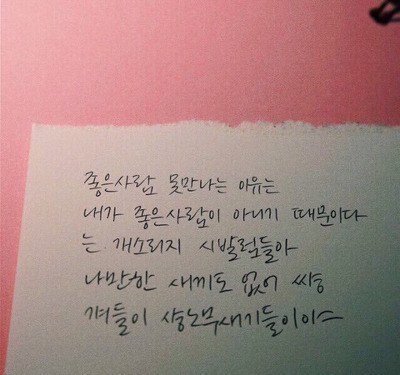 좋은사람 못만나는 이유는
내가 좋은사람이 아니기 때문이다
는 개소리지 시발럼들아
나만한 새끼도 없어 썅
겨들이 상노무새기들이이스